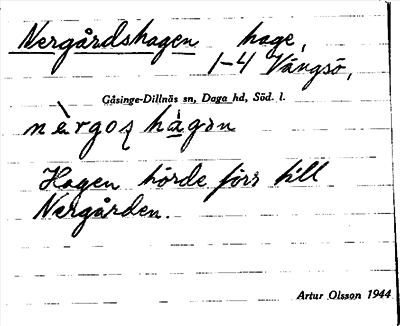 Nergårdshagen hage,
1-4 Vängsö,
Gåsinge-Dillnäs sn, Daga hd, Söd. l.
Hagen hörde förr till
Nergården.
Artur Olsson 1944